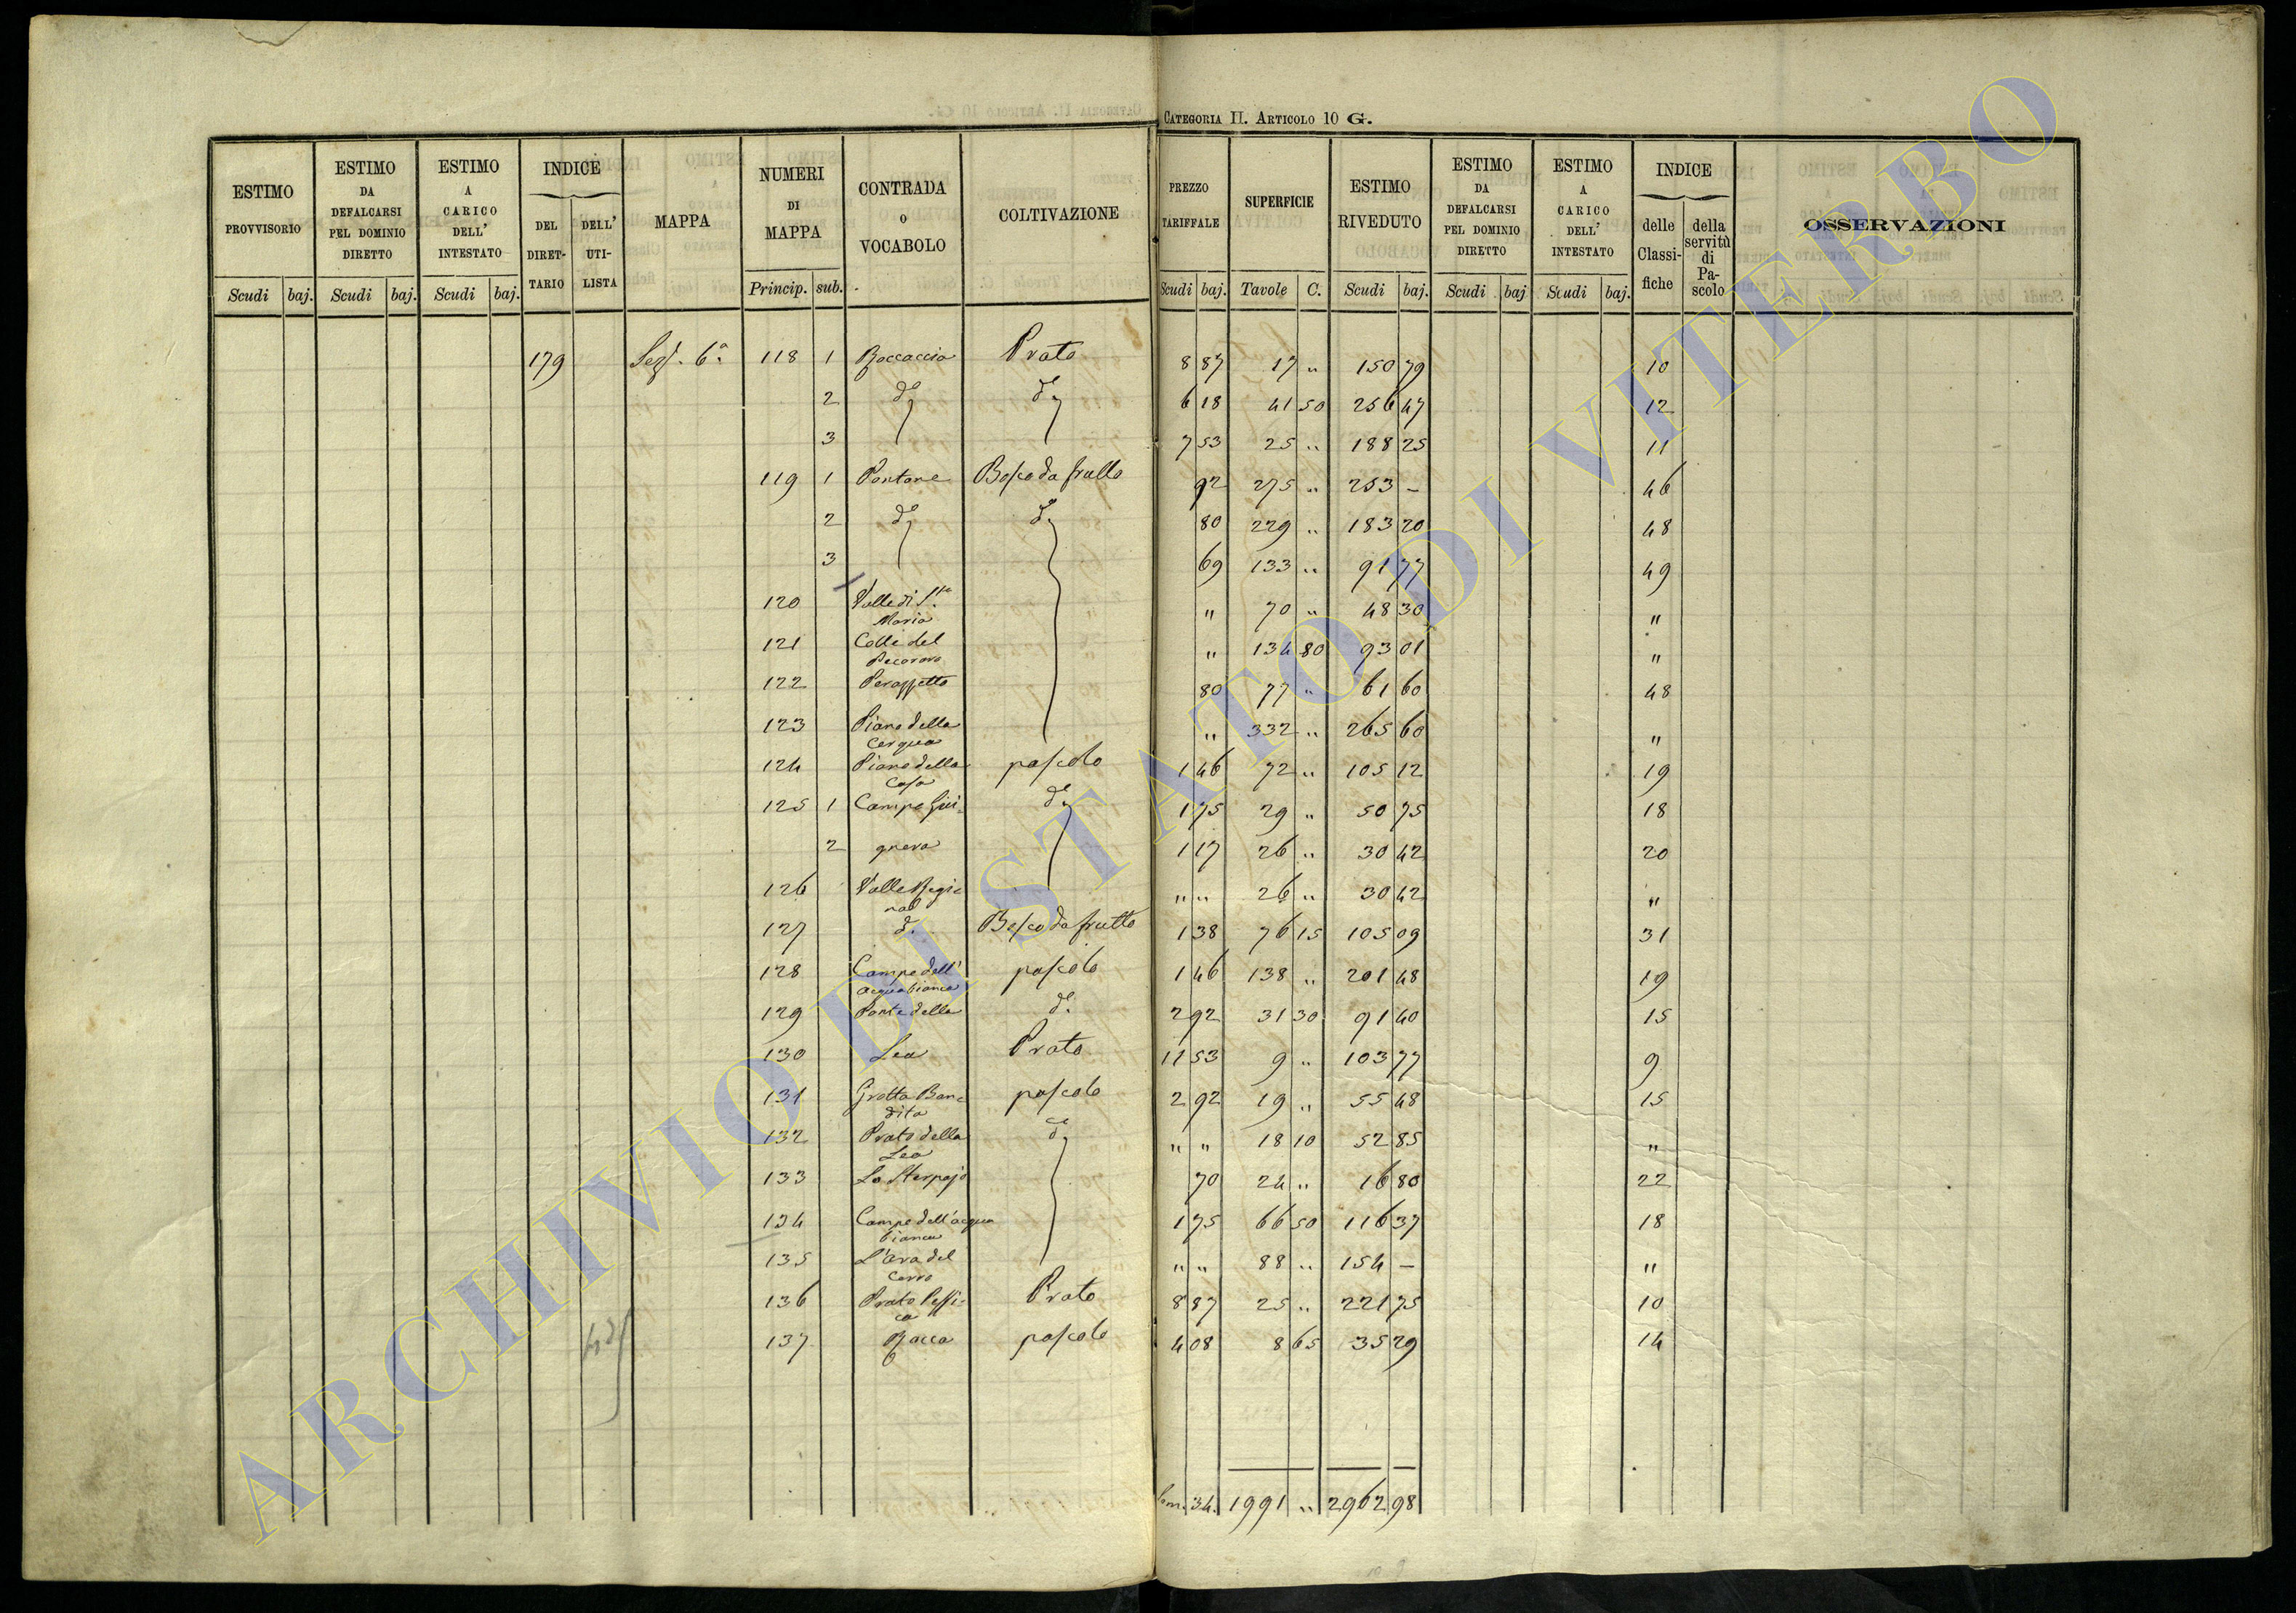 CATEGORIA II. ARTICOLO 10 G.
ESTIMO PROVVISORIO | ESTIMO DA DEFALCARSI PEL DOMINIO DIRETTO | ESTIMO A CARICO DELL' INTESTATO | INDICE DEL DIRETTARIO | DELL' UTILISTA | MAPPA | NUMERI DI MAPPA | CONTRADA O VOCABOLO | COLTIVAZIONE | PREZZO TARIFFALE | SUPERFICIE | ESTIMO RIVEDUTO | ESTIMO DA DEFALCARSI PEL DOMINIO DIRETTO | ESTIMO A CARICO DELL' INTESTATO | INDICE delle Classifiche | della servitù di Pascolo | OSSERVAZIONI
Scudi baj. Scudi baj. Scudi baj. Princip. sub. Scudi baj. Tavole C. Scudi baj. Scudi baj Scudi baj.
179 Sez. 6a 118 1 Boccaccia Prato 8 87 17 " 150 79 10
2 do do 6 18 41 50 256 47 12
3 7 53 25 " 188 25 11
119 1 Pantane Bosco da frutto 92 275 " 253 – 46
2 do do 80 229 " 183 20 48
3 69 133 " 91 77 49
120 Valle di S.ta Maria " 70 " 48 30 "
121 Colle del Pecoraro " 134 80 93 01 "
122 Perazzetto 80 77 " 61 60 48
123 Piano della Cerqua " 332 " 265 60 "
124 Piano della Casa pascolo 1 46 72 " 105 12 19
125 1 Campo Gui- do 1 75 29 " 50 75 18
2 1 17 26 " 30 42 20
126 " " 26 " 30 42 "
127 d. Bosco da frutto 1 38 76 15 105 09 31
128 Campo dell' acquabianca pascolo 1 46 138 " 201 48 19
129 Ponte della do. 2 92 31 30 91 40 15
130 Lea Prato 11 53 9 " 103 77 9
131 Grotta Bandita pascolo 2 92 19 " 55 48 15
132 Prato della Lea do " " 18 10 52 85 "
133 Lo Sterpajo 70 24 " 16 80 22
134 Campo dell'acqua bianca 1 75 66 50 116 37 18
135 L'Ara del Cerro " " 88 " 154 – "
136 Prato Prato 8 87 25 " 221 75 10
137 Rocca pascolo 4 08 8 65 35 29 14
Som. 34. 1991 " 2962 98
ARCHIVIO DI STATO DI VITERBO